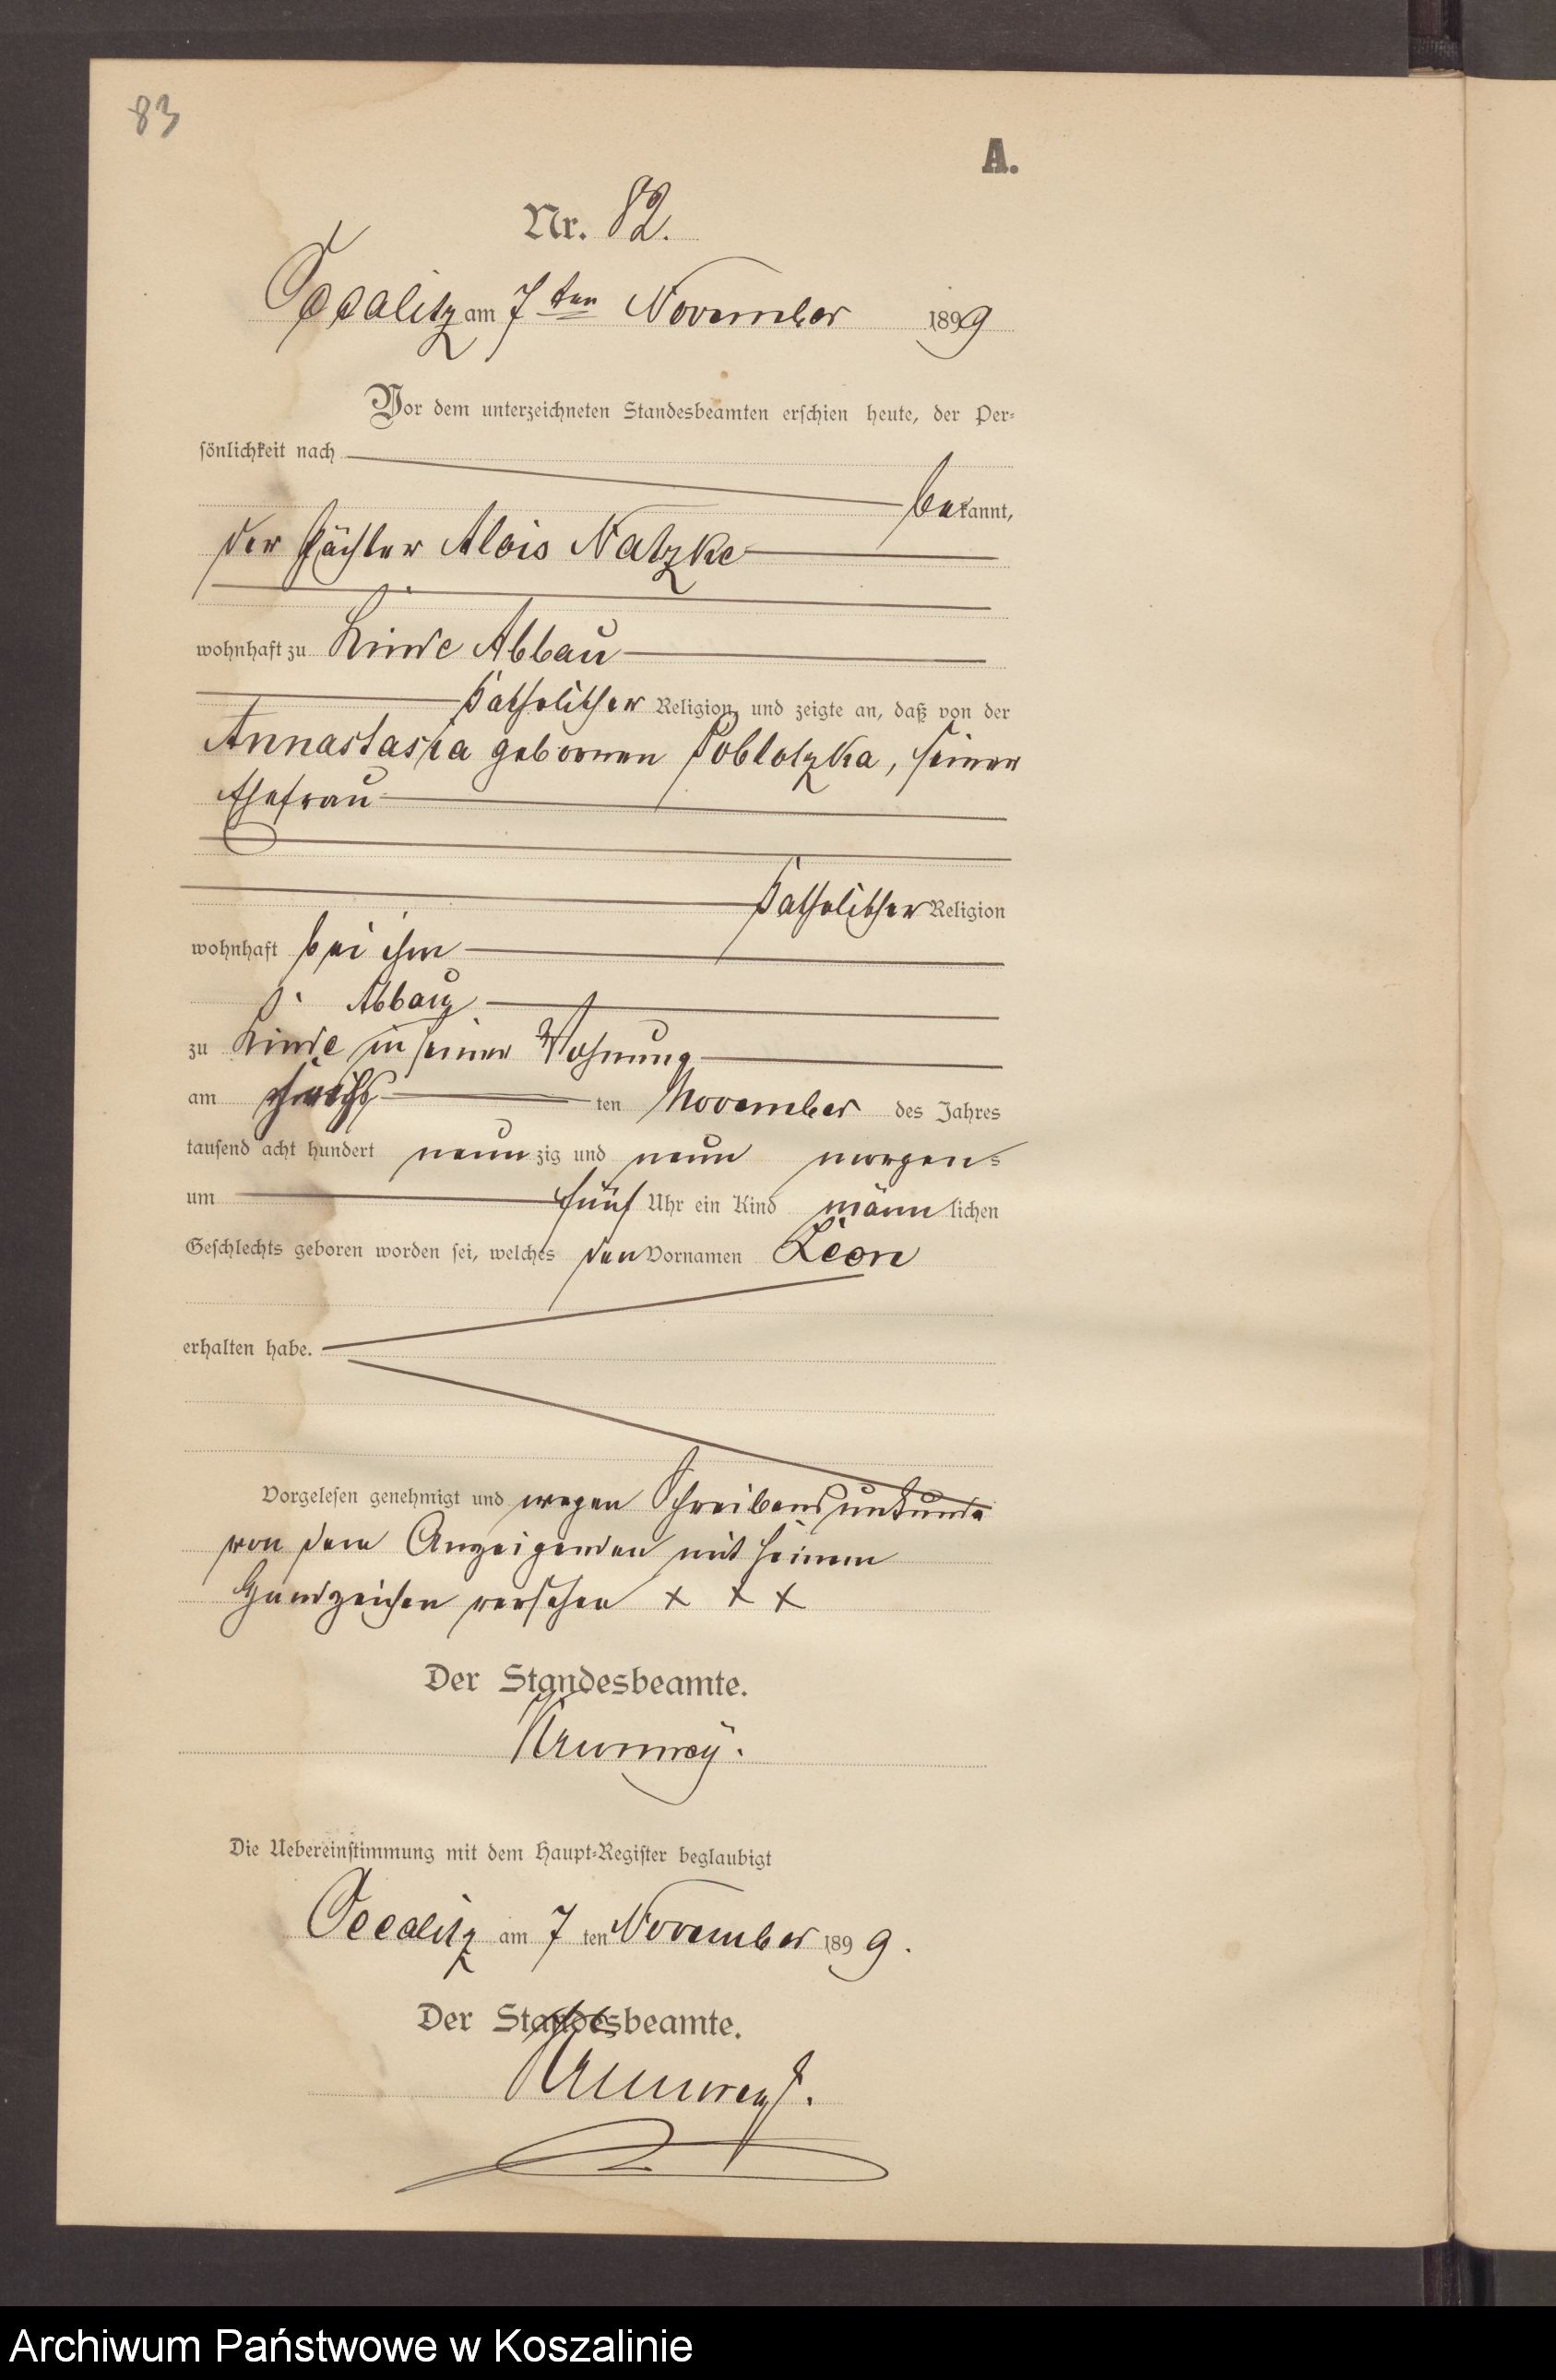 83
A.
Nr. 82.
Occalitz am 7ten November 1899
Vor dem unterzeichneten Standesbeamten erschien heute, der Per-
sönlichkeit nach
bekannt,
der Pächter Alois Natzke
wohnhaft zu Linde Abbau
katholischer Religion, und zeigte an, daß von der
Annastasia geborenen Poblotzka, seiner
Ehefrau
katholischer Religion
wohnhaft bei ihm
Abbau
zu Linde in seiner Wohnung
am ten November des Jahres
tausend acht hundert neunzig und neun morgens
um fünf Uhr ein Kind männlichen
Geschlechts geboren worden sei, welches den Vornamen Leon
erhalten habe.
Vorgelesen genehmigt und wegen Schreibensunkunde
von dem Anzeigenden mit seinem
Handzeichen versehen x x x
Der Standesbeamte.
Die Uebereinstimmung mit dem Haupt-Register beglaubigt
Occalitz am 7 ten November 1899.
Der Standesbeamte.
Archiwum Państwowe w Koszalinie